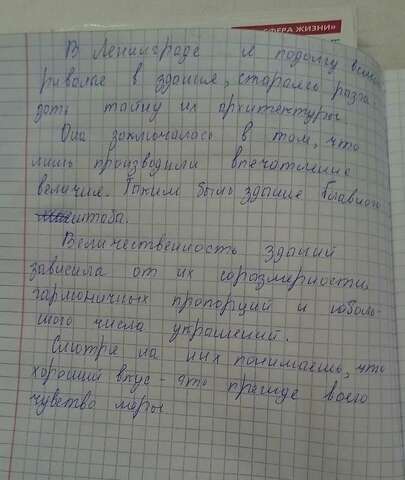 СФЕРА ЖИЗНИ»
В Ленинграде я подолгу всмат
ривался в здания, стараясь разга
дать тайну их архитектуры
Она заключалась в том, что
лишь производили впечатление
величия. Таким было здание Главного
штаба.
Величественность зданий
зависила от их соразмерности
гармоничных пропорций и неболь
шого числа украшений.
Смотря на них понимаешь, что
хороший вкус - это прежде всего
чувство меры